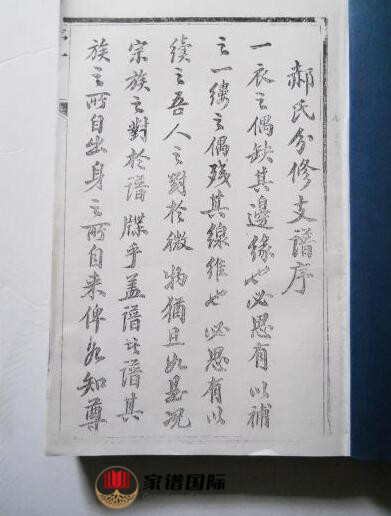 郝氏分修支谱序
一衣之偶缺其邊緣也必思有以補
之一缕之偶残其線維也必思有以
续之吾人之對於微物猶且如是况
宗族之對於谱牒乎盖谱也谱其
族之所自出身之所自来俾知尊
家谱国际